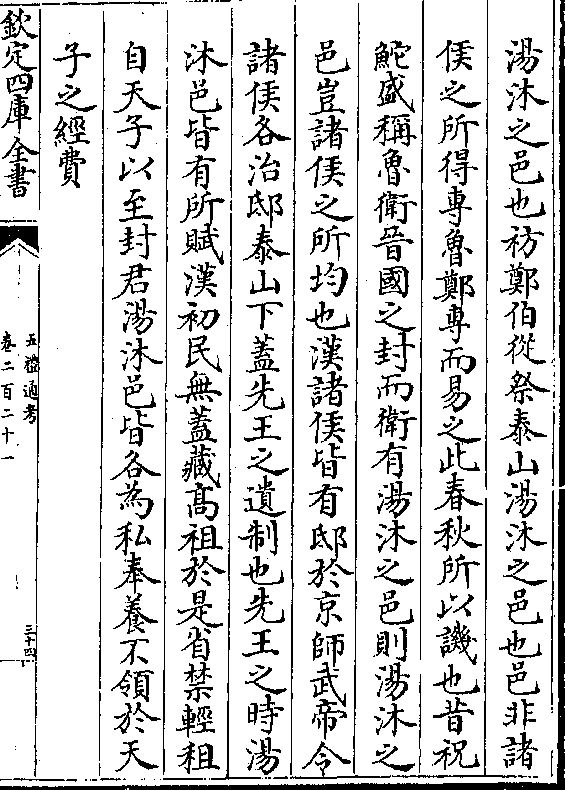 湯沐之邑也祊鄭伯從祭泰山湯沐之邑也邑非諸
侯之所得專魯鄭專而易之此春秋所以譏也昔祝
鮀盛稱魯衛晉國之封而衛有湯沐之邑則湯沐之
邑豈諸侯之所均也漢諸侯皆有邸於京師武帝令
諸侯各治邸泰山下蓋先王之遺制也先王之時湯
沐邑皆有所賦漢初民無蓋藏髙祖於是省禁輕租
自天子以至封君湯沐邑皆各為私奉養不領於天
子之經費
欽定四庫全書
五禮通考
卷二百二十一
三十四